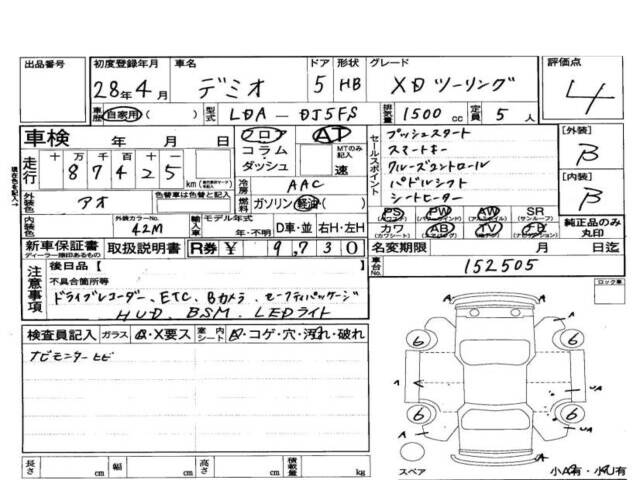 出品番号 初度登録年月 車名 ドア 形状 グレード 評価点
28年4月 デミオ 5 HB XDツーリング 4
車歴 自家用 ( ) 型式 LDA-DJ5FS 排気量 1500 cc 定員 5 人
車検 年 月 日 フロア AT セールスポイント プッシュスタート [外装]
コラム MTのみ記入 スマートキー B
走行 十万千百十一 87425 km ダッシュ 速 クルーズコントロール
色替車は色替と記入 冷房 AAC パドルシフト [内装]
外装色 アオ 燃料 ガソリン 軽油 ( ) シートヒーター B
外装カラーNo. 輸入車 モデル年式 PS PW AW SR
内装色 42M 年・不明 D車・並 右H・左H カワ AB TV ナビ 純正品のみ丸印
新車保証書 取扱説明書 R券 ¥ 9,730 名変期限 月 日迄
ディーラー捺印あるもの
注意事項 後日品 [ ] 車台No. 152505
不具合箇所等 ロック車
ドライブレコーダー、ETC、Bカメラ、セーフティパッケージ
HUD、BSM、LEDライト
検査員記入 ガラス A・X要ス 室内 シート ・コゲ・穴・汚れ・破れ
ナビモニターヒビ
6 6
A A UA
A
6 6 UA
A
長さ cm 幅 cm 高さ cm 積載量 kg スペア 小A有・小U有